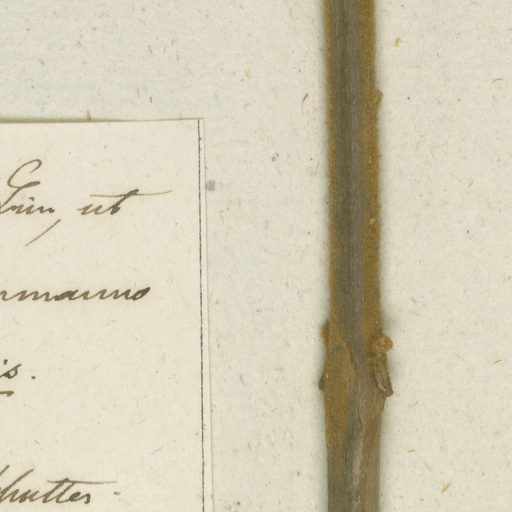 Grin, ut
rmanno
is.
hutter.